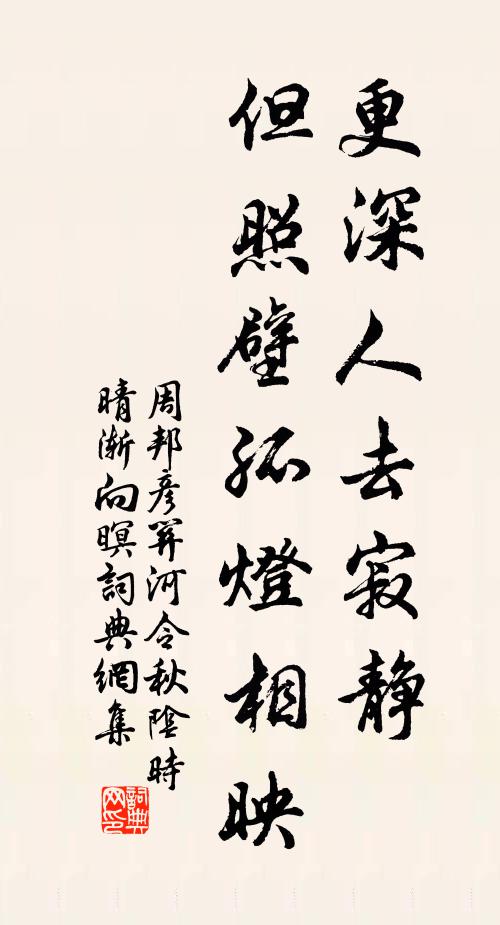 更深人去寂静
但照壁孤燈相映
周邦彦関河令秋陰時
晴漸向暝詞典網集
詞典
网印